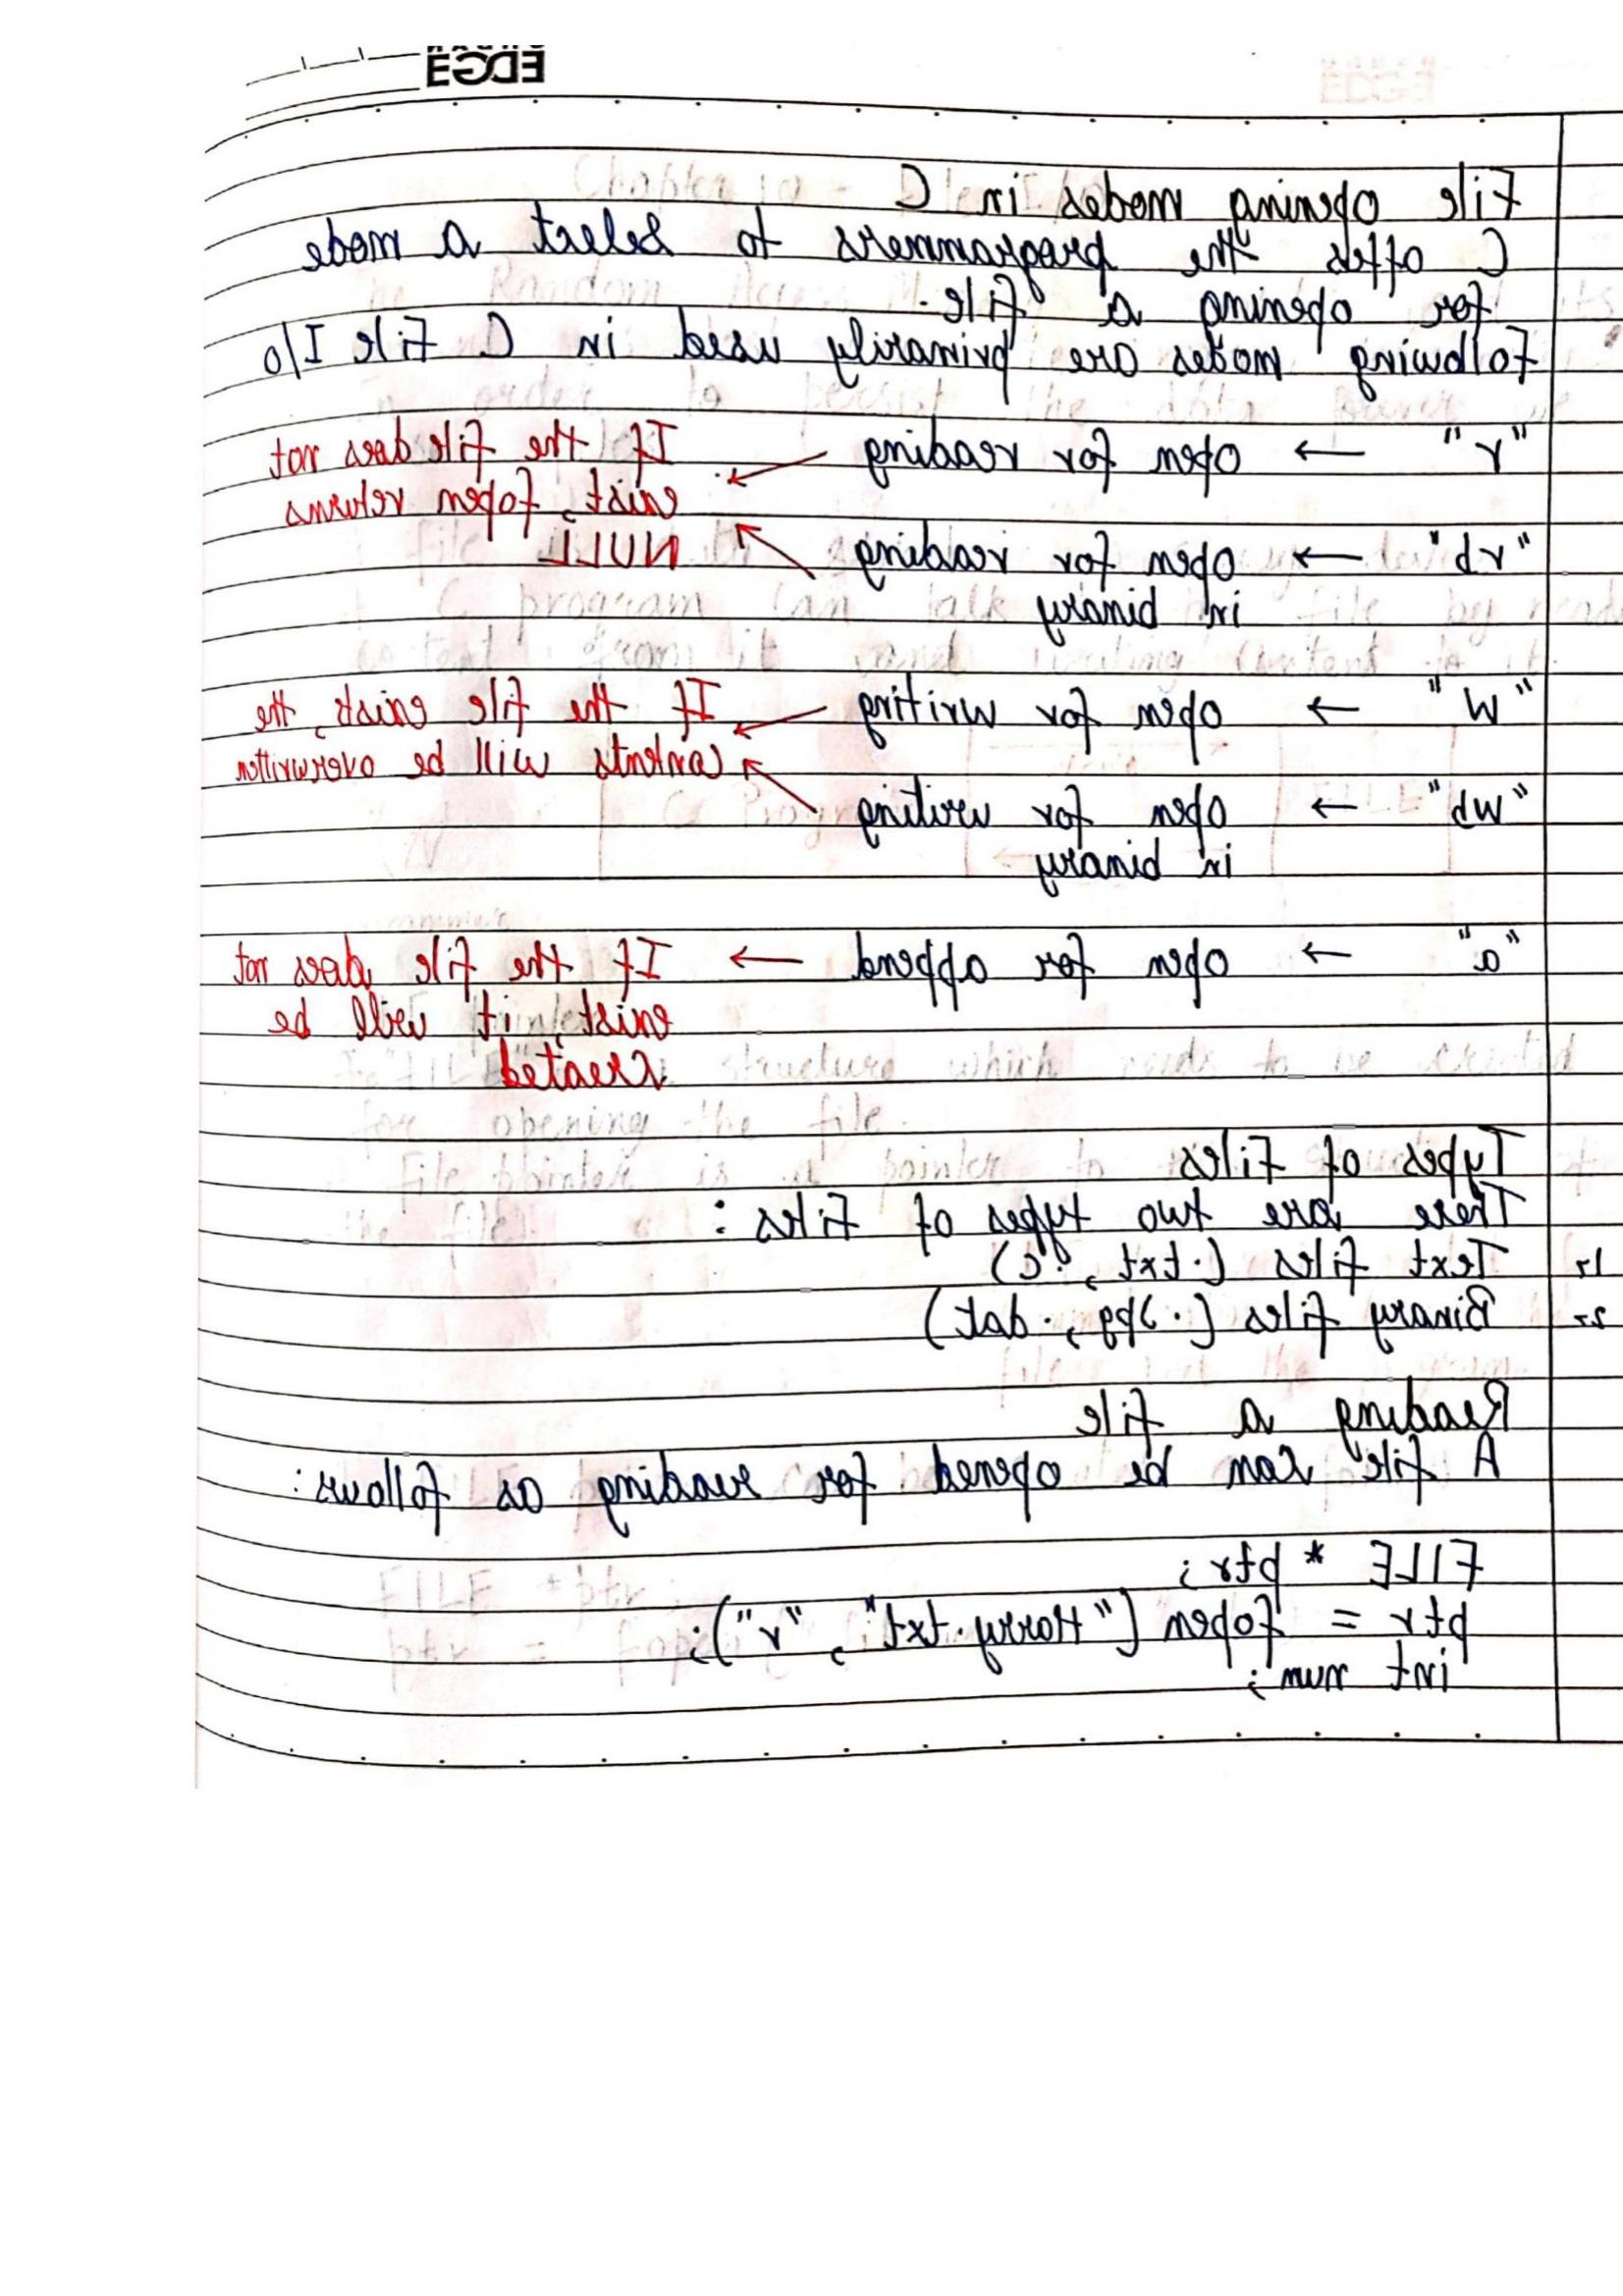 EDGE
File opening modes in C
C offes the programmers to select a mode
for opening a file.
Following modes are primarily used in C File I/o
"r" → open for reading → If the file does not
exist, fopen returns
NULL
"rb" → open for reading
in binary
"w" → open for writing → If the file exists, the
contents will be overwritten
"wb" → open for writing
in binary
"a" → open for append → If the file does not
exist, it will be
created
Types of Files
There are two types of Files :
1- Text files (.txt, .c)
2- Binary files (.jpg, .dat)
Reading a file
A file can be opened for reading as follows :
FILE * ptr ;
ptr = fopen ("Harry.txt", "r");
int num ;